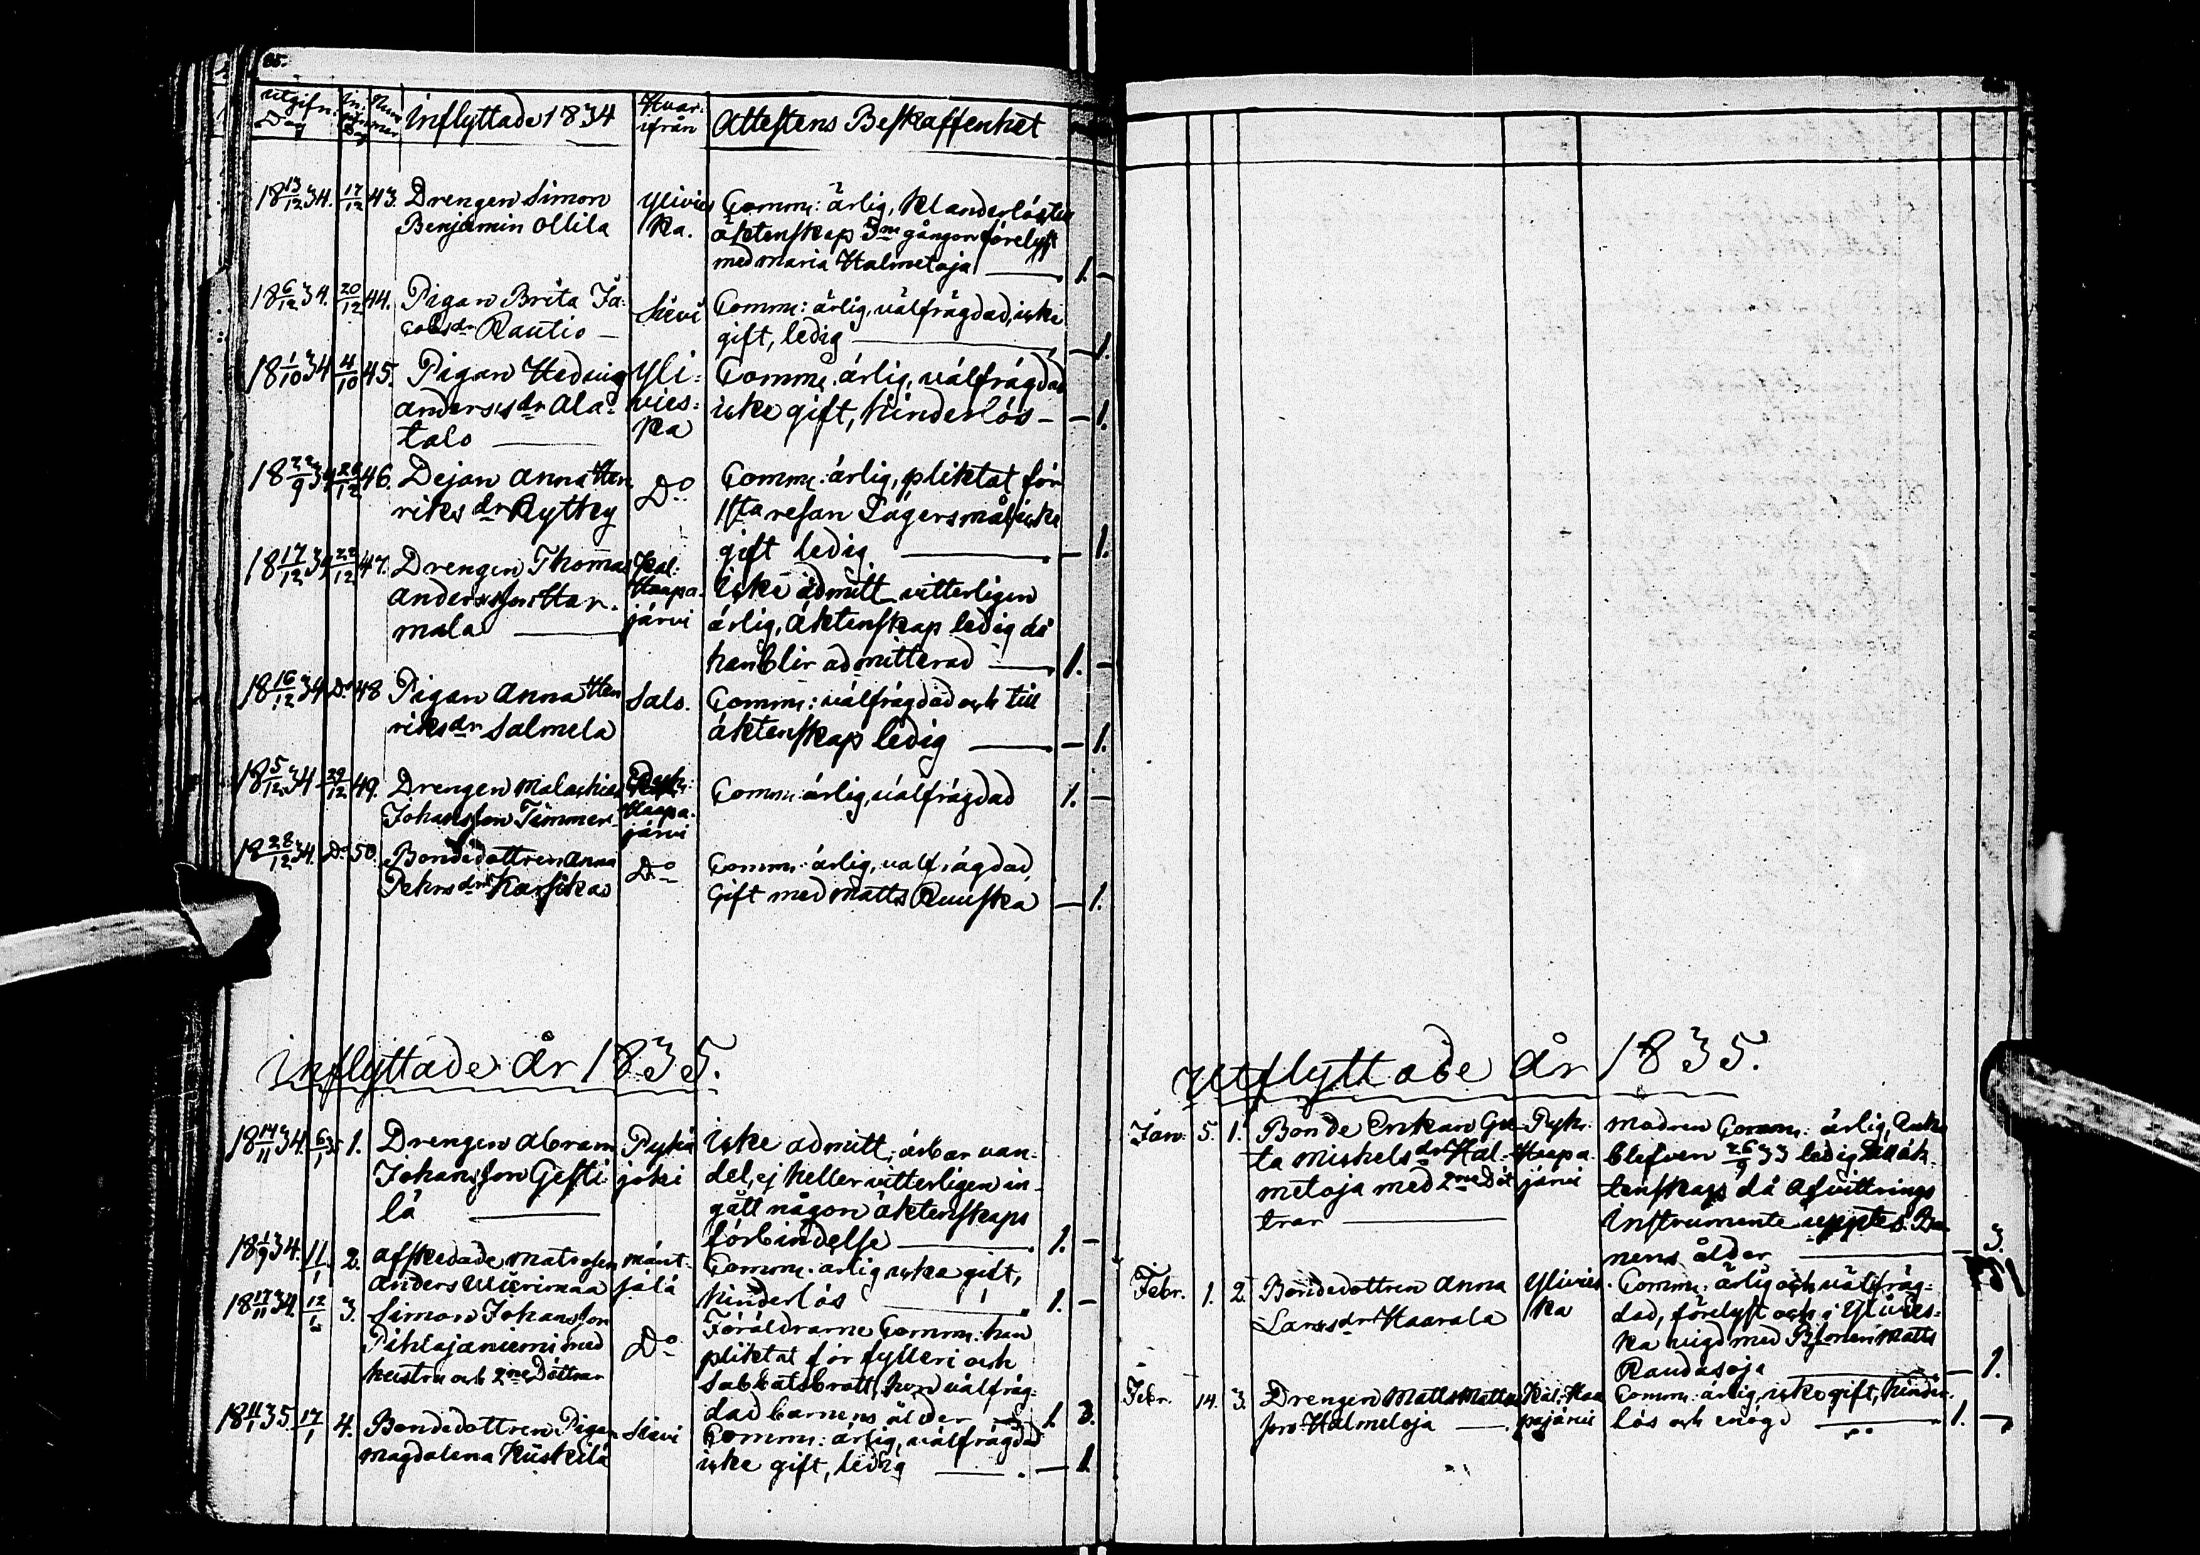 65.
Utgifn. Dag
In: Dag
Num mer
Inflyttade 1834
Hvar: ifrån
Attestens Beskaffenhet
18 13/12 34. 17/12 43. Drengen Simon
Benjamin Ollila
Ylivies
ka.
Comm: ärlig, klanderlös, till
äktenskap 3ne gångor förelyst
med Maria Halmetoja — 1. —
18 6/12 34. 20/12 44. Pigan Brita Ja:
cobsdr Rautio —
Sievi
Comm: ärlig, välfrägdad, icke
gift, ledig — — 1.
18 1/10 34 4/10 45. Pigan Hedvig
Andersdr Ala-
talo —
Yli:
vies:
ka
Comm: ärlig, välfrägdad
icke gift, hinderlös — — 1.
18 22/9 34 46. Dejan Anna Hen
riksdr Rytky
Do
Comm: ärlig, pliktat för
1sta resan Lägersmål, icke
gift ledig — — 1.
18 17/12 34 22/12 47. Drengen Thomas
Andersson Har-
mala —
Kal:
Haapa-
järvi
Icke admitt vitterligen
ärlig, äktenskap ledig då
han blir admitterad — 1. —
18 16/12 34 Do 48 Pigan Anna Hen
riksdr Salmela
Salo.
Comm: välfrägdad och till
äktenskap ledig — — 1.
18 5/12 34 29/12 49. Drengen Malachias
Johansson Timmer-
Pyh:
Haapa-
järvi
Comm: ärlig, välfrägdad 1. —
18 28/12 34. Do 50. Bondedottren Anna
Pehrsdr Karsikas
Do
Comm: ärlig, välfrägdad,
Gift med Matts Ruuska — 1.
Inflyttade år 1835.
18 14/11 34. 6/1 35 1. Drengen Abram
Johansson Gesti-
lä —
Pyhä
joki
Icke admitt, ärbar van-
del, ej heller vitterligen in-
gått någon äktenskaps
förbindelse — 1. —
18 1/9 34. 11/1 2. Afskedade Matrosen
Anders Wierimaa
Mänt-
jälä
Comm: ärlig icke gift,
hinderlös — 1. —
18 17/11 34. 12/1 3. Simon Johansson
Pihlajaniemi med
hustru och 2ne Döttrar
Do
Föräldrarne Comm: han
pliktat för fylleri och
Sabbatsbrott, hon välfräg:
dad barnens ålder — 1. 3.
18 11/1 35. 17/1 4. Bondedottren Pigan
Magdalena Kiiskilä
Sievi
Comm: ärlig, välfrägdad
icke gift, ledig — — 1.
Utflyttade år 1835.
Jan: 5. 1. Bonde Enkan Gre-
ta Michelsdr Hal-
metoja med 2ne Döt
trar —
Pyh:
Haapa-
järvi
Modren Comm: ärlig, Enka
blefven 26/9 33 ledig till äk-
tenskaps då Afvittrings
Instrumente upptes. Bar
nens ålder — — 3.
Febr. 1. 2. Bondedottren Anna
Larsdr Haarala
Ylivies
ka
Comm: ärlig och välfräg-
dad, förelyst och i Ylivies-
ka vigd med Bsonen Matts
Raudasoja — — 1.
Febr. 14. 3. Drengen Matts Matts
son Halmetoja —
Kal: Haa
pajärvi
Comm: ärlig, icke gift, hinder-
lös och enögd — 1. —